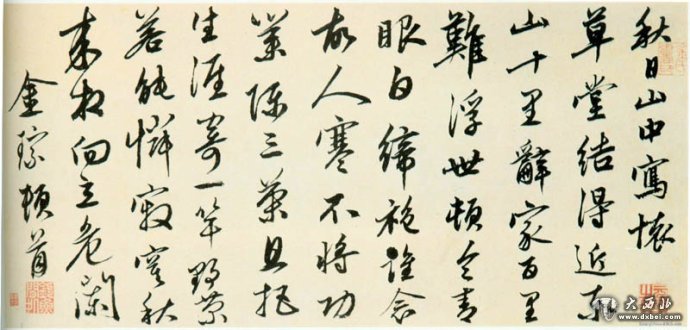 秋日山中寫懷
草堂結得近東
山十里辭家百里
難浮世頓令青
眼白綈袍誰念
故人寒不將功
業陳三策且把
生涯寄一竿野
若能憐寂寞秋
來相向立危闌
金琮頓首
大西北
www.dxbei.com